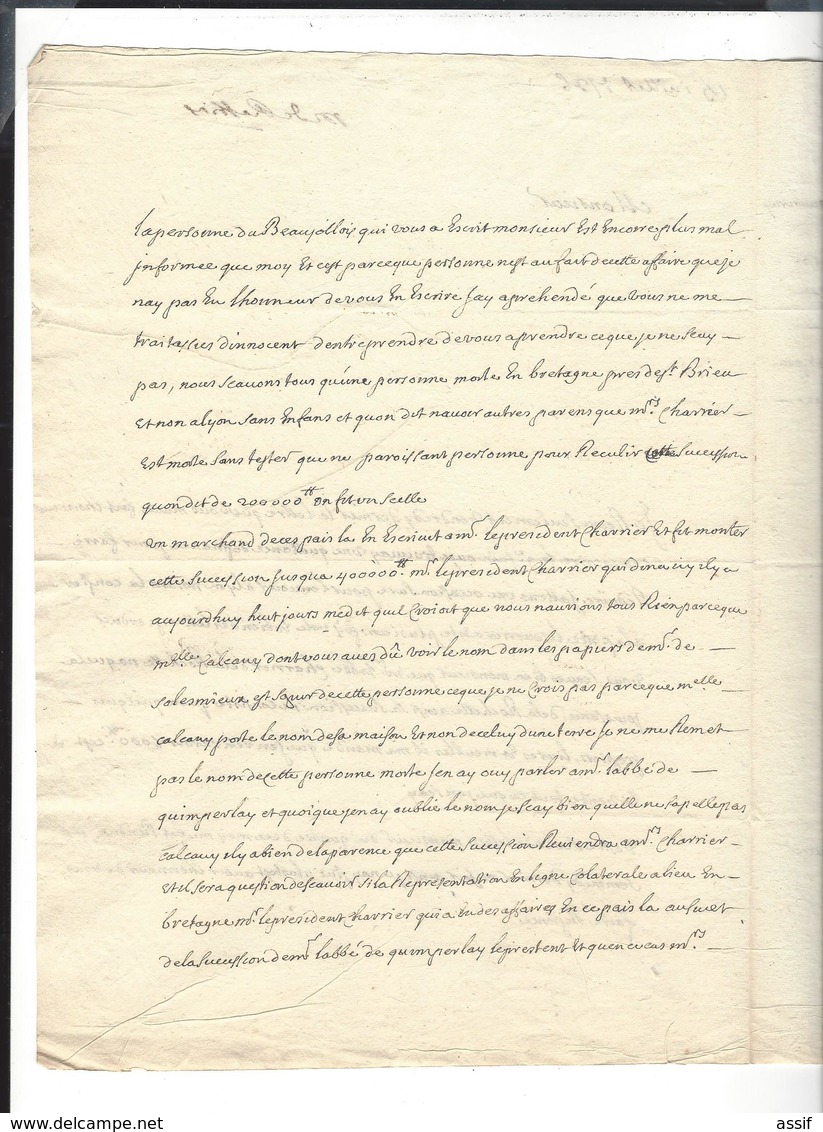 lapersonne du Beaujollois qui vous a Escrit monsieur Est Encore plus mal
jnformee que moy Et cest parceque personne nest au fait de cette affaire que je
nay pas Eu lhonneur de vous En Escrire Jay aprehendé que vous ne me
traitassies dinnocent dentreprendre de vous aprendre ce que je ne scay
pas, nous scavons tous quune personne morte En bretagne pres de st Brieu
Et non a lyon sans Enfans et quon dit navoir autres parens que mrs Charrier
Est morte sans tester que ne paroissant personne pour Reculir cette succession
quon dit de 200000tt on fit un scelle
Un marchand de ces pais la En Escrivit a mr le president Charrier Et fit monter
cette succession jusqua 400000tt mr le president Charrier qui dina icy il y a
aujourdhuy huit jours me dit quil Croioit que nous naurions tous Rien parceque
mlle Calcauy dont vous aves dû voir le nom dans les papiers de mr de
Solesmieux est soeur de cette personne ce que je ne Crois pas parceque melle
calcauy porte le nom de sa maison Et non de celuy dune terre Je ne me Remet
pas le nom de cette personne morte Jen ay ouy parler a mr labbé de
quimperlay et quoique jen ay oublie le nom je scay bien quelle ne sapelle pas
Calcauy il y a bien de laparence que cette succession Reviendra a mrs Charrier
Et il sera question de scavoir si la Representation En ligne Colaterale a lieu En
bretagne mr le president Charrier qui a Eu des affaires En ce pais la au sujet
de la succession de mr labbé de quimperlay le pretent Et quen ce cas mrs
assif